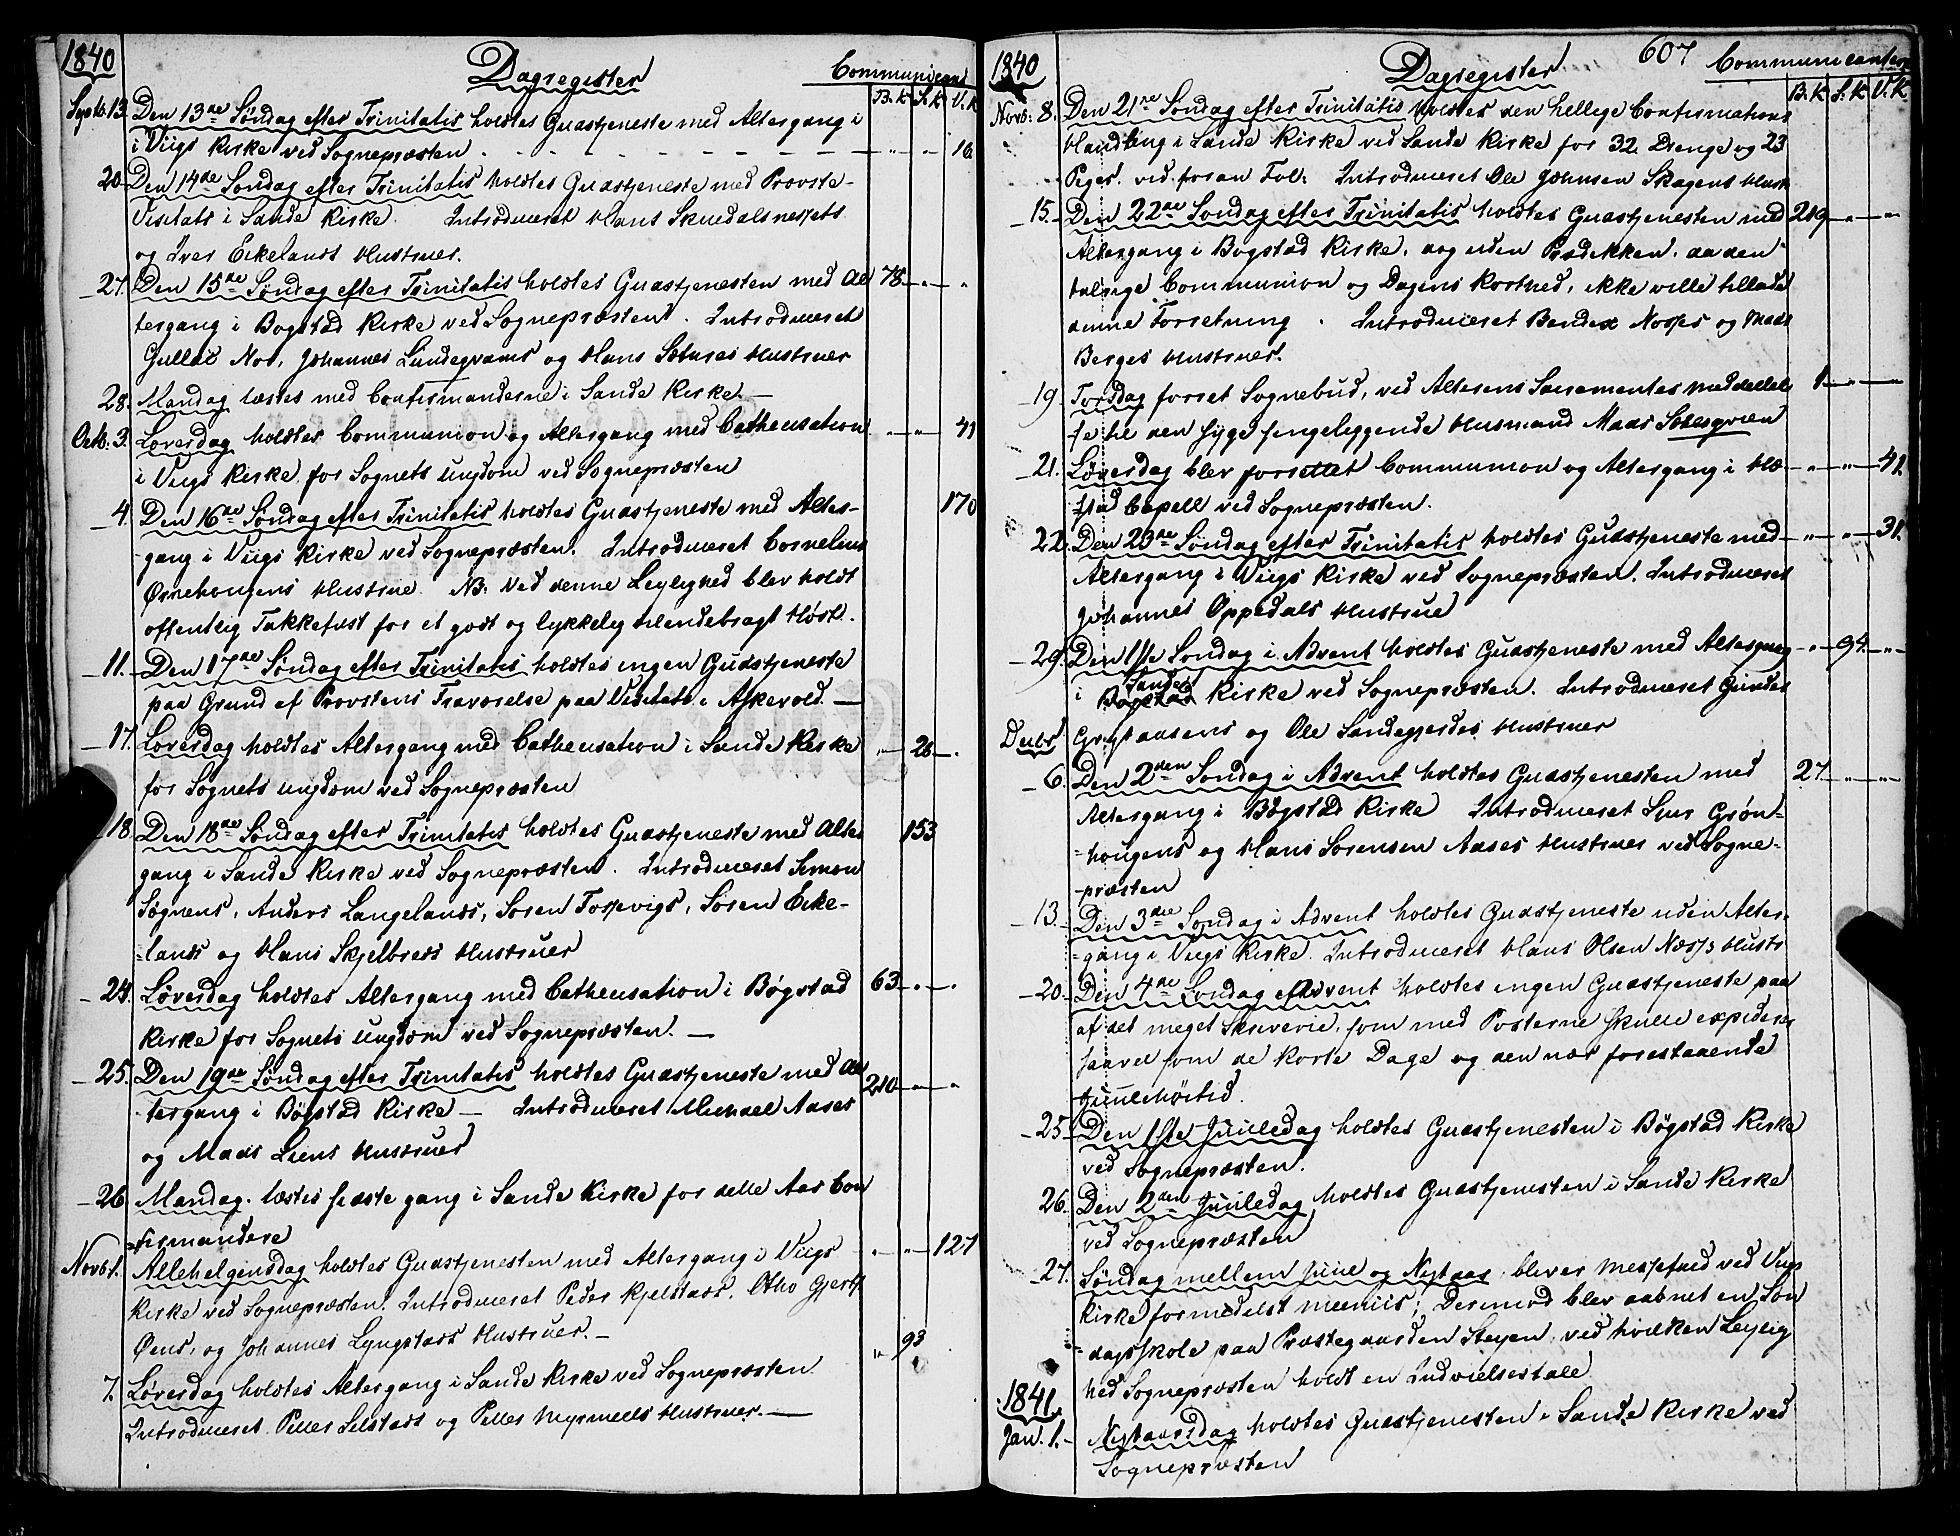 1840
Dagregister
Communicant
B.K S.K V.K
Septb. 13. Den 13de Søndag efter Trinitatis holdtes Gudstjeneste med Altergang i
i Viigs Kirke ved Sognepræsten - 16
20 Den 14de Søndag efter Trinitatis holdtes Gudstjeneste med Provste-
Visitats i Sande Kirke. Introduceret Hans
og Iver Eikelands Hustruer.
27. Den 15de Søndag efter Trinitatis holdtes Gudstjenesten med Al 78 - " - "
tergang i Bogstad Kirke ved Sognepræsten. Introduceret
Johannes og Hans Hustruer
28. Mandag læstes med Confirmanderne i Sande Kirke. -
Octb. 3. Løverdag holdtes Communion og Altergang med Cathensation " - " - 41
i Viigs Kirke for Sognets Ungdom ved Sognepræsten
4. Den 16de Søndag efter Trinitatis holdtes Gudstjeneste med Alter- 170
gang i Viigs Kirke ved Sognepræsten. Introduceret Cornelius
Ørnehougens Hustrue. NB: Ved denne Leylighed blev holdt
offentlig Takkefæst for et godt og lykkelig tilendebragt Høst.
11. Den 17de Søndag efter Trinitatis holdtes ingen Gudstjeneste
paa Grund af Provstens Fraværelse paa Visitats i Askevold. -
17. Løverdag holdtes Altergang med Cathensation i Sande Kirke " - 26 - "
for Sognets Ungdom ved Sognepræsten
18. Den 18de Søndag efter Trinitatis holdtes Gudstjeneste med Alter 153
gang i Sande Kirke ved Sognepræsten. Introduceret Simon
Søgnens, Anders Langelands, Søren Torsevigs, Søren Eike-
-lands og Hans Skjelbreds Hustruer
24. Løverdag holdtes Altergang med Cathensation i Bøgstad 63 - " - "
Kirke for Sognets Ungdom ved Sognepræsten. -
25. Den 19de Søndag efter Trinitatis holdtes Gudstjeneste med Al 210 - " - "
-tergang i Bøgstad Kirke - Introduceret Michael Aases
og Mads Liens Hustruer
26 Mandag læstes sidste gang i Sande Kirke for dette Aar Con
=firmandere
Novb 1. Allehelgensdag holdtes Gudstjenesten med Altergang i Viigs " - " - 127
Kirke ved Sognepræsten. Introduceret Peder Kjelstads, Otho
Øens, og Johannes Lyngstads Hustruer. -
" 93
7. Løverdag holdtes Altergang i Sande Kirke ved Sognepræsten
Introduceret Peller Selstads og Peller Myrmells Hustruer. -
1840
Dagregister
607
Communicanter
B.K S.K V.K
Novb: 8. Den 21de Søndag efter Trinitatis holdtes den hellige Confirmations
Handling i Sande Kirke ved Sande Kirke for 32 Drenge og 23
Piger. vid. foran Fol: Introduceret Ole Johnsen Skagens Hustr
15. Den 22de Søndag efter Trinitatis holdtes Gudstjenesten med 219 - " - "
Altergang i Bogstad Kirke, dog uden Prædikken, da den
talrige Communion og Dagens Korthed, ikke ville tillade
denne Forretning. Introduceret Bendix Noses og Mads
Berges Hustruer.
19 Torsdag forret Sognebud, ved Alterens Sacramentes meddelel 1 - " -
se til den syge sengeliggende Husmand Mads
21. Løverdag blev forrettet Communion og Altergang i
stad Capell ved Sognepræsten. " - " - 41.
22. Den 23de Søndag efter Trinitatis holdtes Gudstjeneste med - " - " - 31.
Altergang i Viigs Kirke ved Sognepræsten. Introduceret
Johannes Oppedals Hustrue
29. Den 1ste Søndag i Advent holdtes Gudstjeneste med Altergang - " - 94. - "
i Bogstad Sande Kirke ved Sognepræsten. Introduceret
og Ole Sandegjerdes Hustruer
Decbr
6. Den 2den Søndag i Advent holdtes Gudstjenesten med 27 - " - "
Altergang i Bøgstad Kirke Introduceret Siur Grøn-
=hougens og Hans Sørensen Aases Hustruer ved Sogne-
-præsten
13. Den 3die Søndag i Advent holdtes Gudstjeneste uden Alter-
-gang i Viigs Kirke. Introduceret Hans Olsen Næss's Hustr
20. Den 4de Søndag af Advent holdtes ingen Gudstjeneste paa
af det meget Skriverie, som med Posterne skulle expederes
saavel som de korte Dage og den nær forestaaende
Juulehøitid.
25. Den 1ste Juuledag holdtes Gudstjenesten i Bøgstad Kirke
ved Sognepræsten.
26. Den 2den Juuledag holdtes Gudstjenesten i Sande Kirke
ved Sognepræsten
27. Søndag mellem Juul og Nytaar bliver Messefred ved Viigs
Kirke formedelst Derimod blev aabnet en Søn
=dagsskole paa Præstegaarden Steyen, ved hvilken Leylig
hed Sognepræsten holdt en Indvielsestale
1841.
Jan. 1. - Nytaarsdag holdtes Gudstjenesten i Sande Kirke ved
Sognepræsten